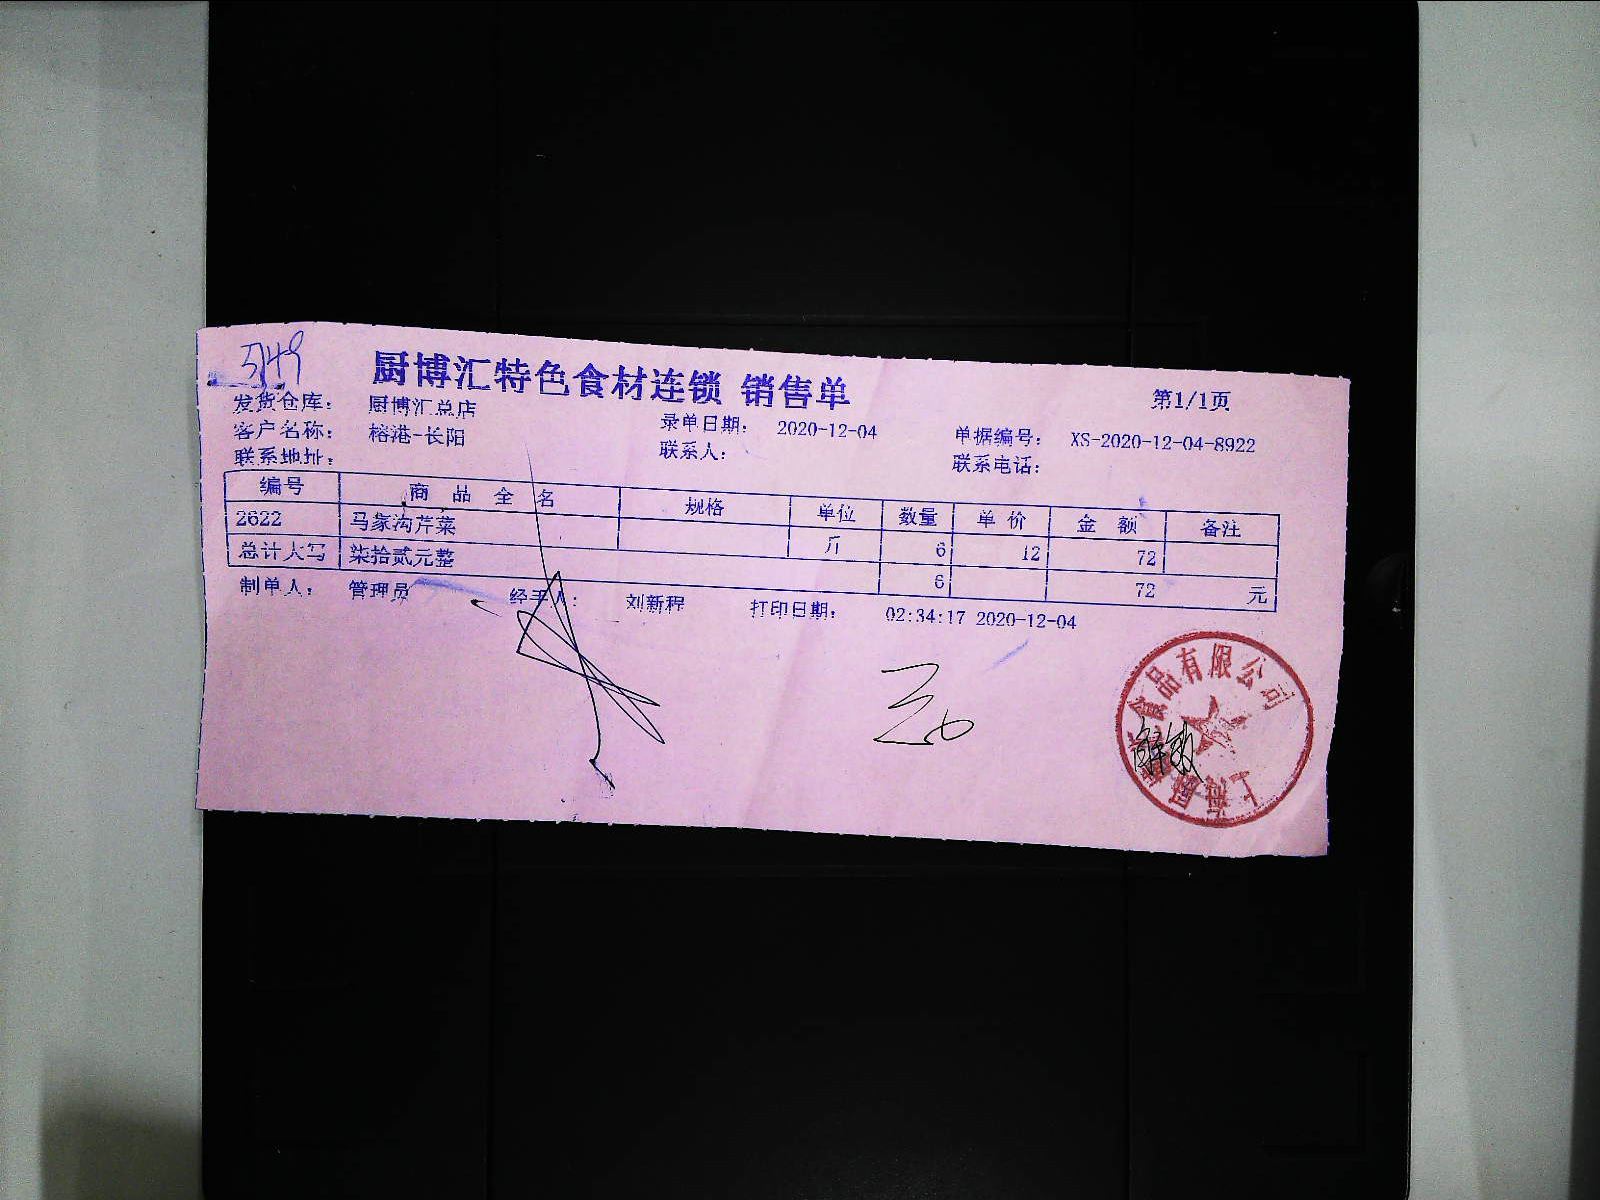 5149
厨博汇特色食材连锁 销售单
第1/1页
发货仓库： 厨博汇总店
录单日期： 2020-12-04
单据编号： XS-2020-12-04-8922
客户名称： 榕港-长阳
联系人：
联系电话：
联系地址：
编号 商品全名 规格 单位 数量 单价 金额 备注
2622 马家沟芹菜 斤 6 12 72
总计大写 柒拾贰元整 6 72 元
制单人： 管理员 经手人： 刘新程 打印日期： 02:34:17 2020-12-04
上海厨 食品有限公司